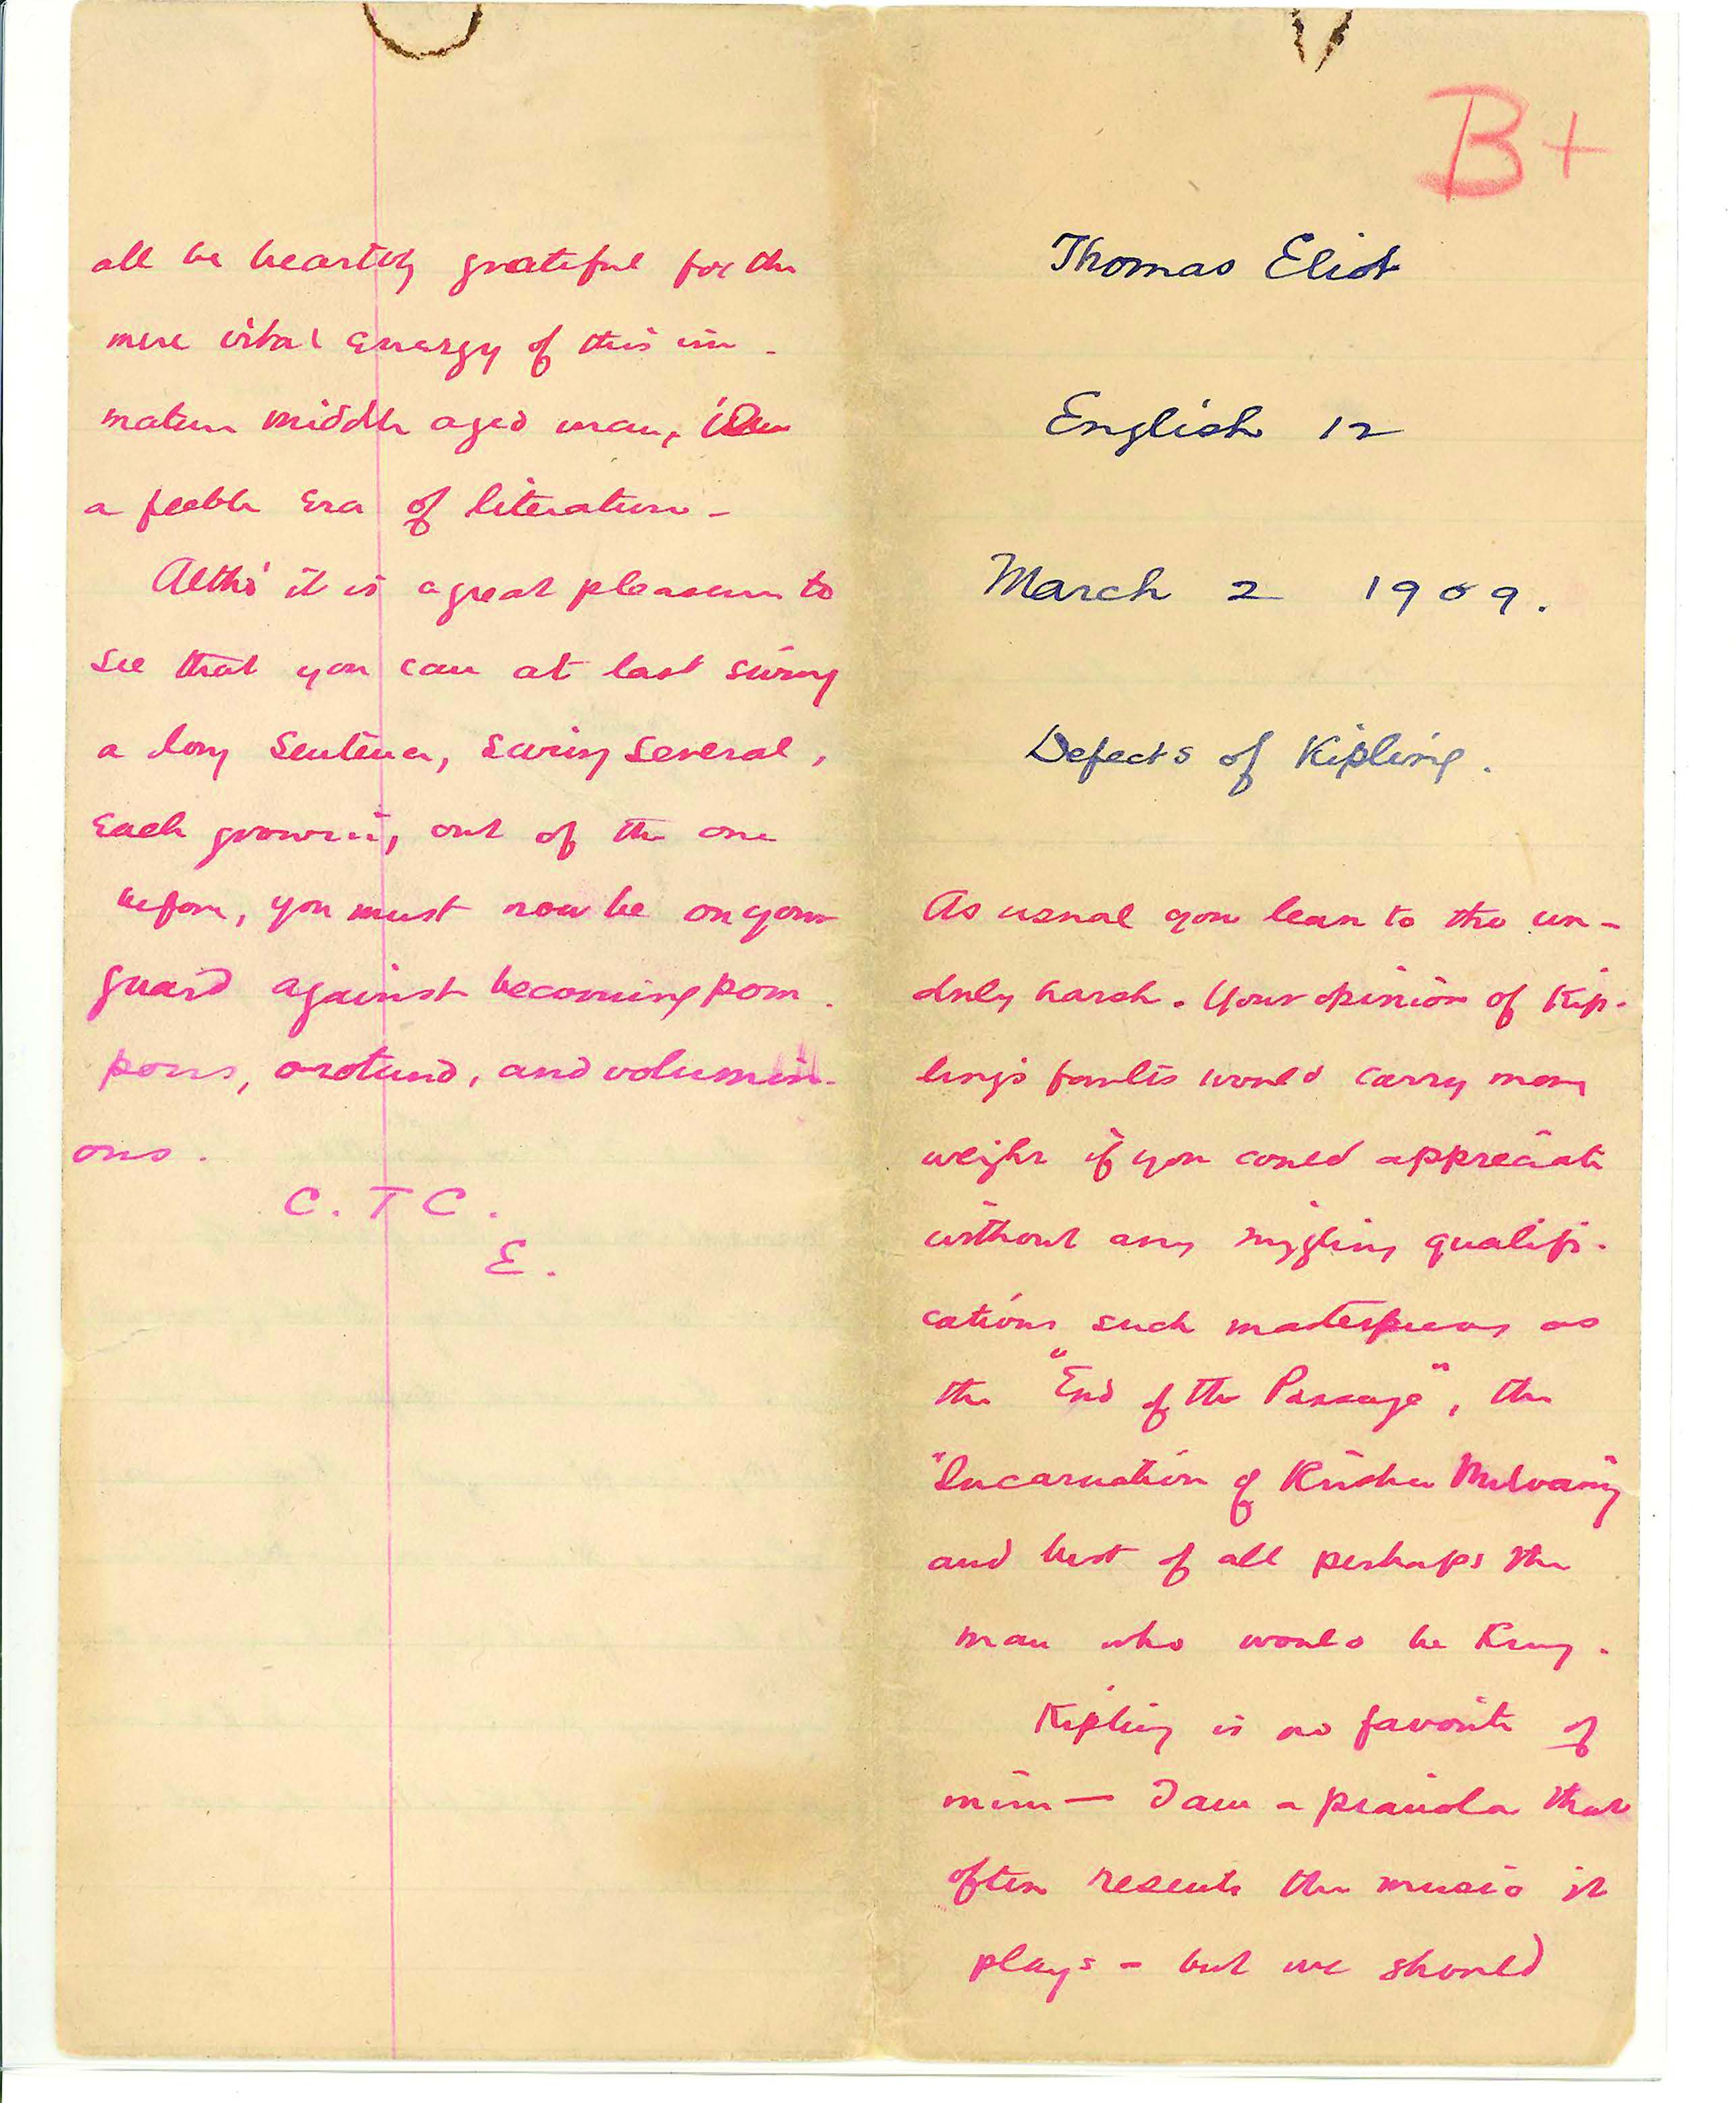 B+
Thomas Eliot
English 12
March 2 1909.
Defects of Kipling.
As usual you lean to the un-
duly harsh. Your opinion of Kip-
ling's faults would carry more
weight if you could appreciate
without any niggling qualifi-
cations such masterpieces as
the "End of the Passage", the
"Incarnation of Krishna Mulvaney
and best of all perhaps the
man who would be King.
Kipling is no favorite of
mine — I am a pianola that
often resents the music it
plays - but we should
all be heartily grateful for the
mere vital energy of this im-
mature middle aged man, in
a feeble era of literature -
Altho' it is a great pleasure to
see that you can at last swing
a long sentence, swing several,
each growing out of the one
before, you must now be on your
guard against becoming pom-
pous, orotund, and volumin-
ous.
C.T.C.
E.